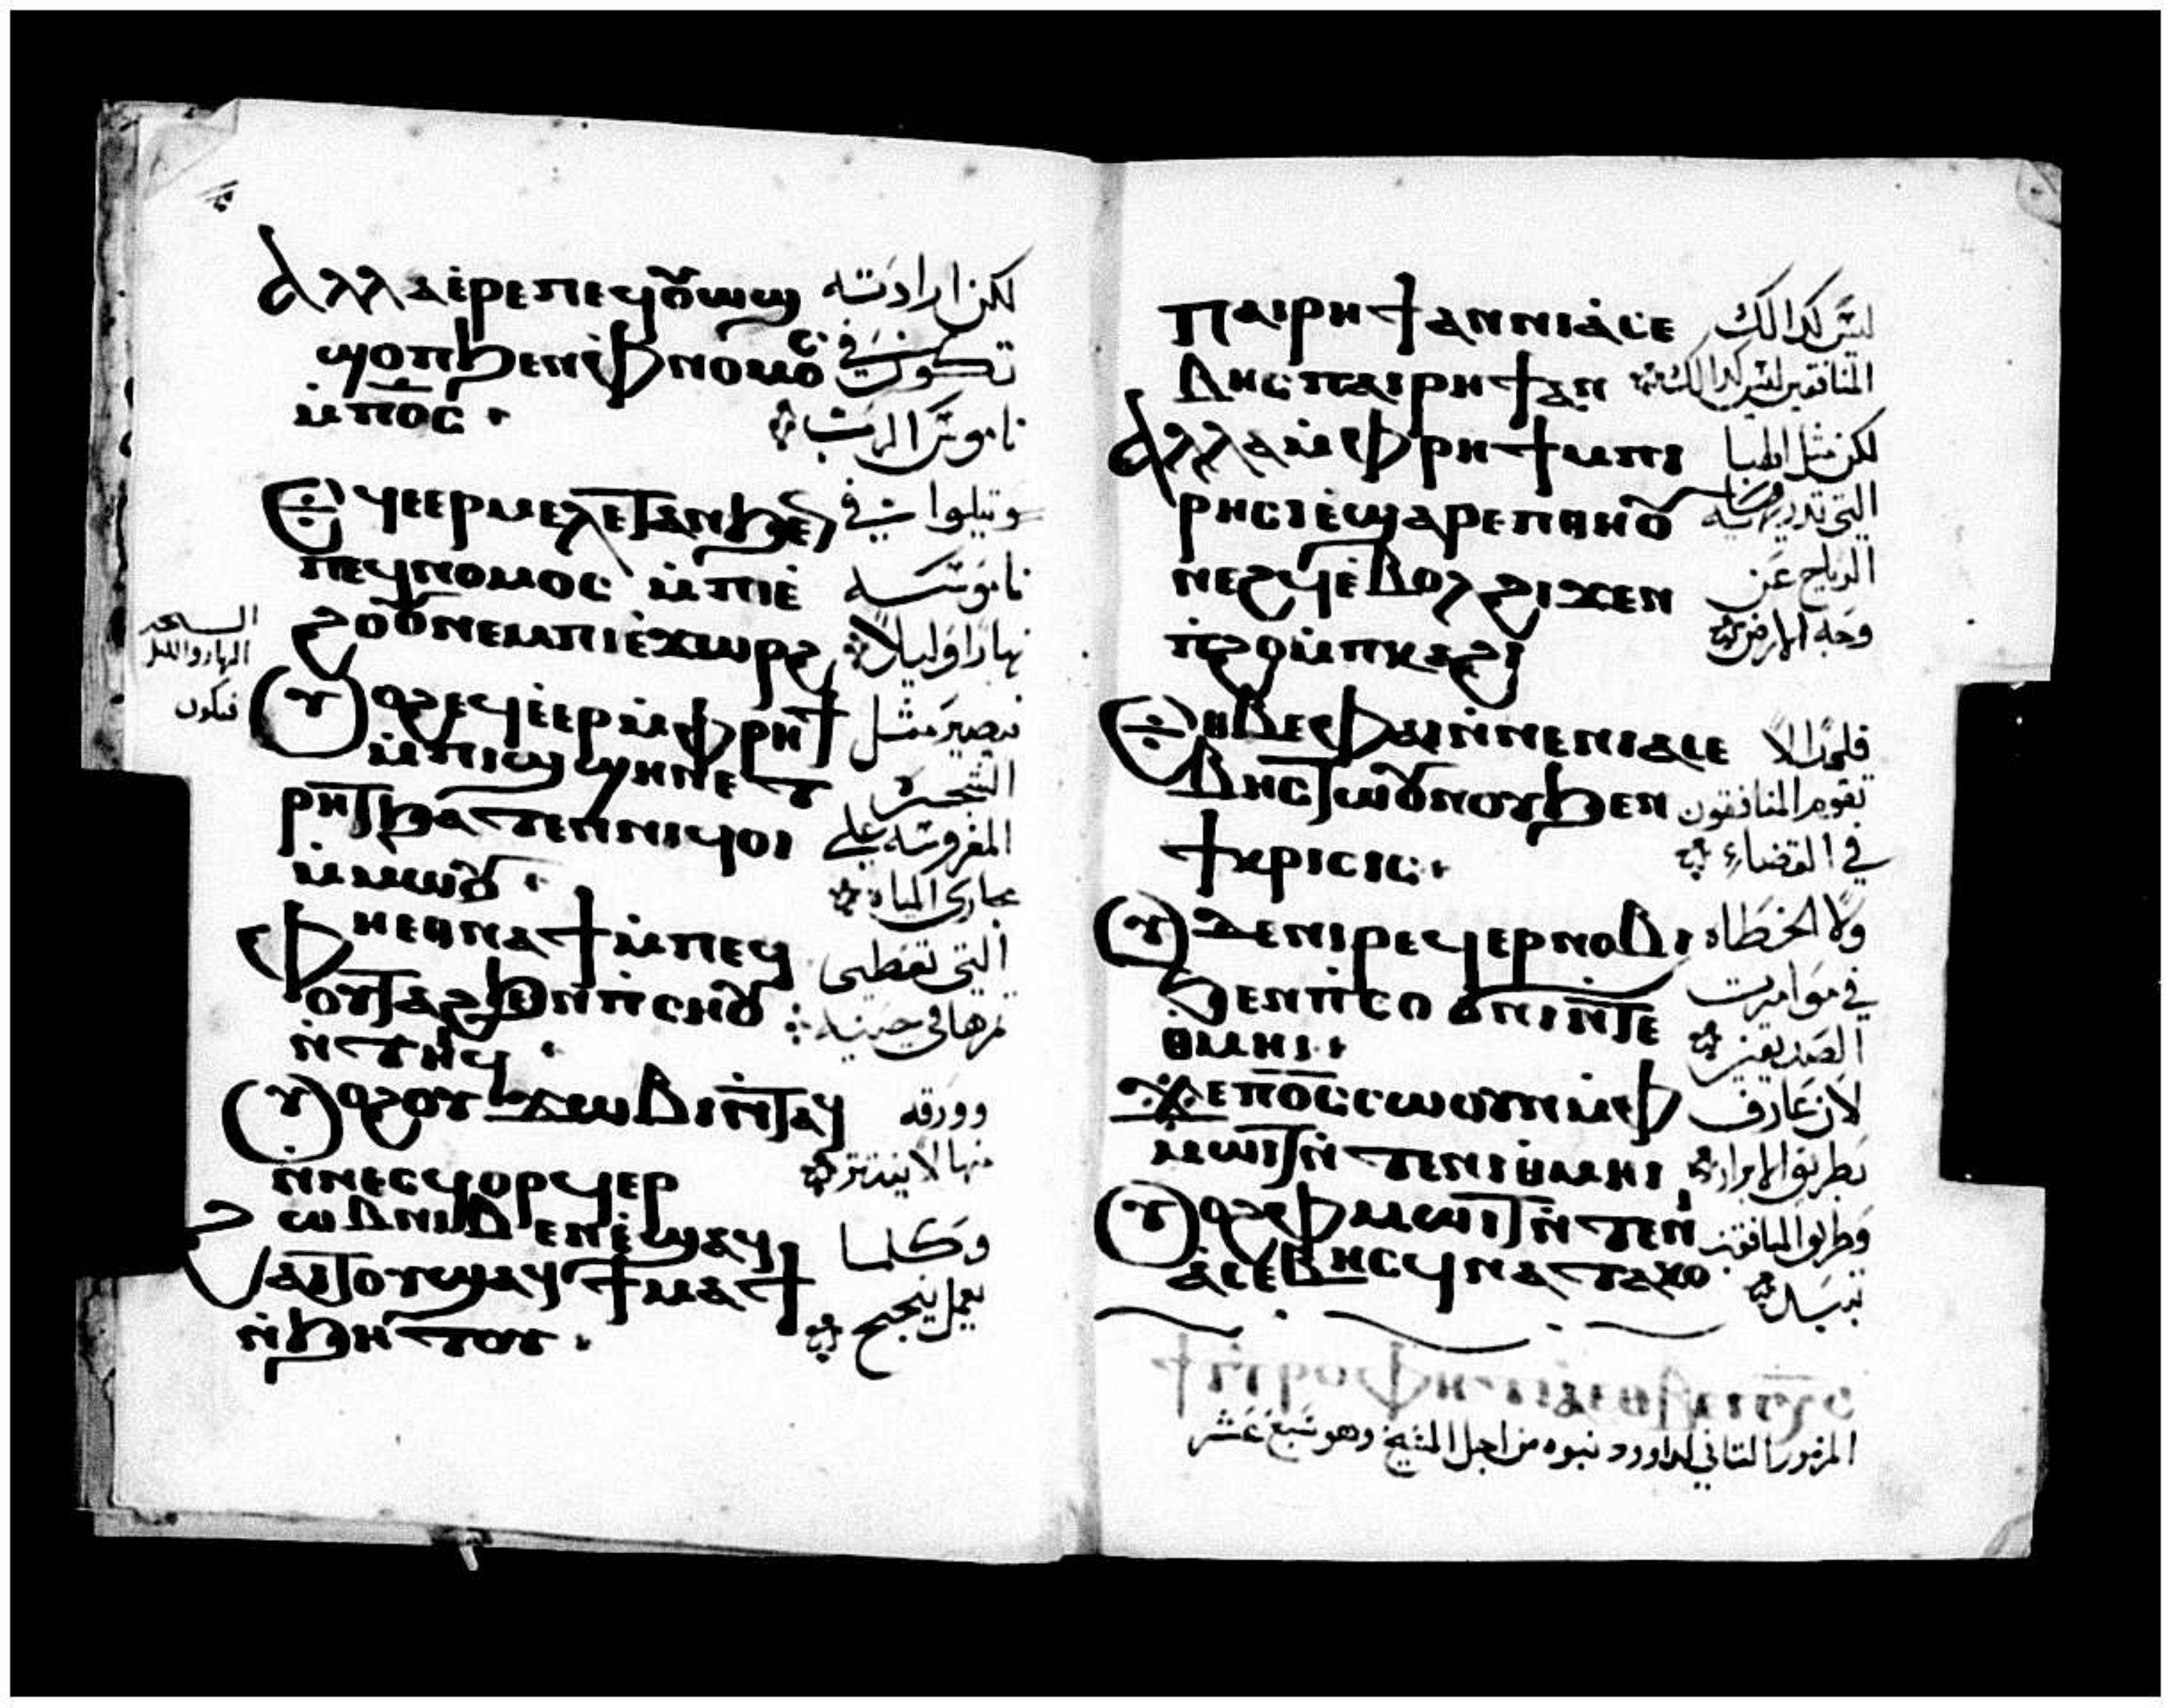 ⲁⲗⲗⲁ ⲉ̇ⲣⲉ ⲡⲉϥⲟⲩⲱϣ لكن ارادته
ϣⲟⲡ ϧⲉⲛ ⲫⲛⲟⲙⲟⲥ تكون في
ⲙ̇ⲡⲟ̅ⲥ̅ ناموس الرب
ⲉϥⲉⲉⲣⲙⲉⲗⲉⲧⲁⲛ ϧⲉⲛ ويتلوا في
ⲡⲉϥⲛⲟⲙⲟⲥ ⲙ̇ⲡⲓⲉ̇ ناموسه
ϩⲟⲟⲩ ⲛⲉⲙ ⲡⲓⲉ̇ϫⲱⲣϩ نهارا وليلا
ⲟⲩⲟϩ ⲉϥⲉ̇ⲉⲣ ⲙ̇ⲫⲣⲏϯ فيصير مثل
ⲙ̇ⲡⲓϣϣⲏⲛ ⲉⲧ الشجره
ⲣⲏⲧ ϧⲁⲧⲉⲛ ⲛⲓϥⲟⲓ المغروسه علي
ⲙ̇ⲙⲱⲟⲩ مجاري المياه
ⲫⲏⲉⲑⲛⲁϯ ⲙ̇ⲡⲉϥ التي تعطي
ⲟⲩⲧⲁϩ ϧⲉⲛ ⲡ̇ⲥⲏⲟⲩ ثمرها في حينه
ⲛ̇ⲧⲏⲓϥ
ⲟⲩⲟϩ ⲟⲩϫⲱⲃⲓ ⲛ̇ⲧⲁϥ وورقه
ⲛ̇ⲛⲉⲥϥⲟⲣϥⲉⲣ منها لا ينتثر
ϩⲱⲃ ⲛⲓⲃⲉⲛ ⲉ̇ϣⲁϥ وكلما
ⲁⲓⲧⲟⲩ ϣⲁϥϯⲙⲁϯ يعمل ينجح
ⲛ̇ϧⲏⲧⲟⲩ
النهار والليل
فيكون
ⲡⲁⲓⲣⲏϯ ⲁⲛ ⲛⲓⲁ̇ⲥⲉ ليس كذالك
ⲃⲏⲥ ⲡⲁⲓⲣⲏϯ ⲁⲛ المنافقين ليس كذالك
ⲁⲗⲗⲁ ⲙ̇ⲫⲣⲏϯ ⲙⲡⲓ لكن مثل الهبا
ⲣⲏⲥⲓ ⲉ̇ϣⲁⲣⲉ ⲡⲑⲏⲟⲩ التي تدريه
ⲛⲉϩϥ ⲉ̇ⲃⲟⲗ ϩⲓϫⲉⲛ الرياح عن
ⲡ̇ϩⲟ ⲙ̇ⲡⲕⲁϩⲓ وجه الارض
ⲉⲑⲃⲉ ⲫⲁⲓ ⲛ̇ⲛⲉ ⲛⲓⲁⲥⲉ فلهذا لا
ⲃⲏⲥ ⲧⲱⲟⲩⲛⲟⲩ ϧⲉⲛ تقوم المنافقون
ϯⲕⲣⲓⲥⲓⲥ في القضاء
ⲟⲩⲇⲉ ⲛⲓⲣⲉϥⲉⲣⲛⲟⲃⲓ ولا الخطاه
ϧⲉⲛ ⲡ̇ⲥⲟϭⲛⲓ ⲛ̇ⲧⲉ في موامرت
ⲑⲙⲏⲓ الصديقين
ϫⲉ ⲡⲟ̅ⲥ̅ ⲥⲱⲟⲩⲛ ⲙ̇ⲫ لان عارف
ⲙⲱⲓⲧ ⲛ̇ⲧⲉ ⲛⲓⲑⲙⲏⲓ بطريق الابرار
ⲟⲩⲟϩ ⲫⲙⲱⲓⲧ ⲛ̇ⲧⲉ ⲛⲓ وطريق المنافقين
ⲁ̇ⲥⲉⲃⲏⲥ ϥⲛⲁⲧⲁⲕⲟ
المزمور التاني لداوود نبوه من اجل المشيخ وهو سبع عشر